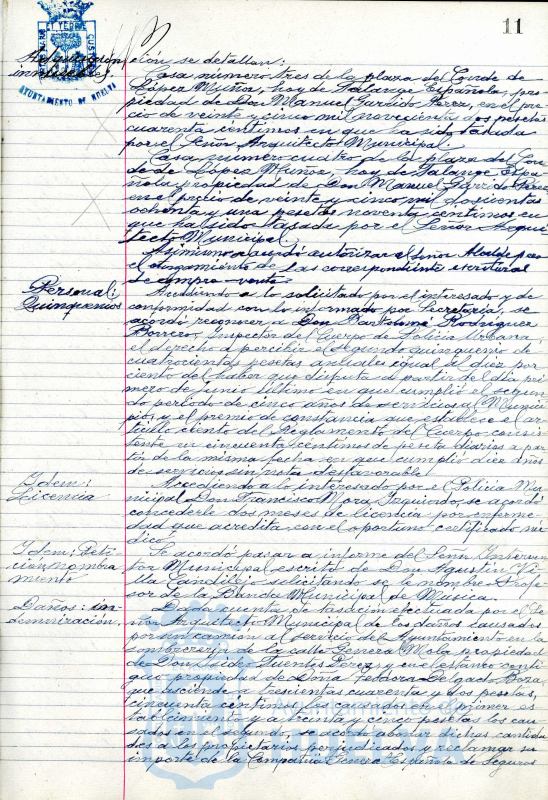 11
ción se detallan:
Casa número tres de la plaza del Conde de
López Muñoz, hoy de Falange Española, pro-
piedad de Don Manuel Garrido Perez, en el pre-
cio de veinte y cinco mil novecientas dos pesetas
cuarenta centimos en que ha sido tasada
por el Señor Arquitecto Municipal.
Casa número cuatro de la plaza del Con-
de de López Muñoz, hoy de Falange Espa-
ñola propiedad de Don Manuel Garrido Perez
en el precio de veinte y cinco mil doscientas
ochenta y una pesetas noventa centimos en
que ha sido tasada por el Señor Arqui
tecto Municipal
Asimismo acordó autorizar al Señor Alcalde para
el otorgamiento de las correspondiente escrituras
de compra-venta.
Personal:
Quinquenios
Accediendo a lo solicitado por el interesado y de
conformidad con lo informado por Secretaría, se
acordó reconocer a Don Bartolomé Rodriguez
Borrero, Inspector del Cuerpo de Policía Urbana,
el derecho a percibir el segundo quinquenio de
cuatrocientas pesetas anuales igual al diez por
ciento del haber que disfruta a partir del dia pri
mero de Junio último en que cumplió el segun-
do período de cinco años de servicios al Munici-
pio, y el premio de constancia que establece el ar-
tículo ciento del Reglamento del Cuerpo consis-
tente en cincuenta centimos de peseta diarios a par-
tir de la misma fecha en que cumplió diez años
de servicios sin nota desfavorable.
Idem:
Licencia
Accediendo a lo interesado por el Policía Mu-
nicipal Don Francisco Mora Izquierdo, se acordó
concederle dos meses de licencia por enferme-
dad que acredita con el oportuno certificado mé-
dico.
Idem: Peti-
ción nombra
miento
Se acordó pasar a informe del Señor Interven
tor Municipal escrito de Don Agustín Vi-
lla Candilejo solicitando se le nombre Profe-
sor de la Banda Municipal de Música.
Daños: in-
demnización.
Dada cuenta de tasación efectuada por el Se-
ñor Arquitecto Municipal de los daños causados
por un camión al servicio del Ayuntamiento en la
sombrerería de la calle General Mola propiedad
de Don Fuentes Perez y en el estanco conti
guo propiedad de Doña Teodora Delgado Boza,
que asciende a trescientas cuarenta y dos pesetas,
cincuenta centimos los causados en el primer es
tablecimiento y a treinta y cinco pesetas los cau-
sados en el segundo, se acordó abonar dichas cantida
des a los propietarios perjudicados y reclamar su
importe de la Compañía General Española de Seguros
AYUNTAMIENTO DE HUELVA